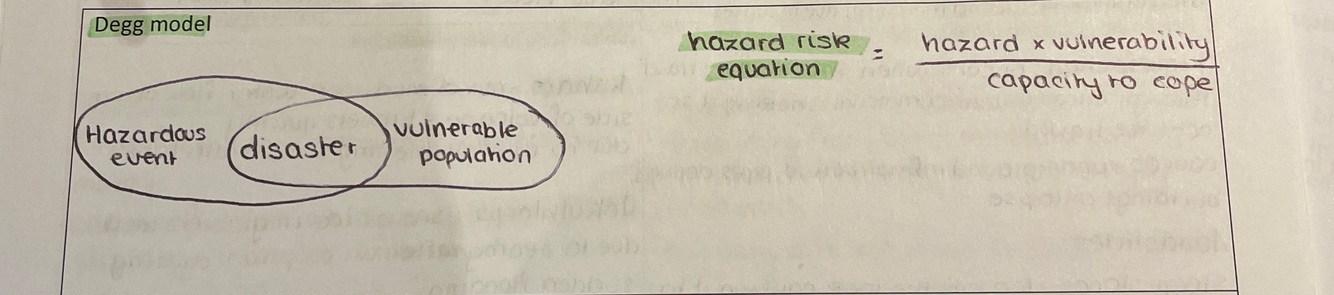 Degg model
hazard risk
equation
=
hazard x vulnerability
capacity to cope
Hazardous
event
disaster
vulnerable
population